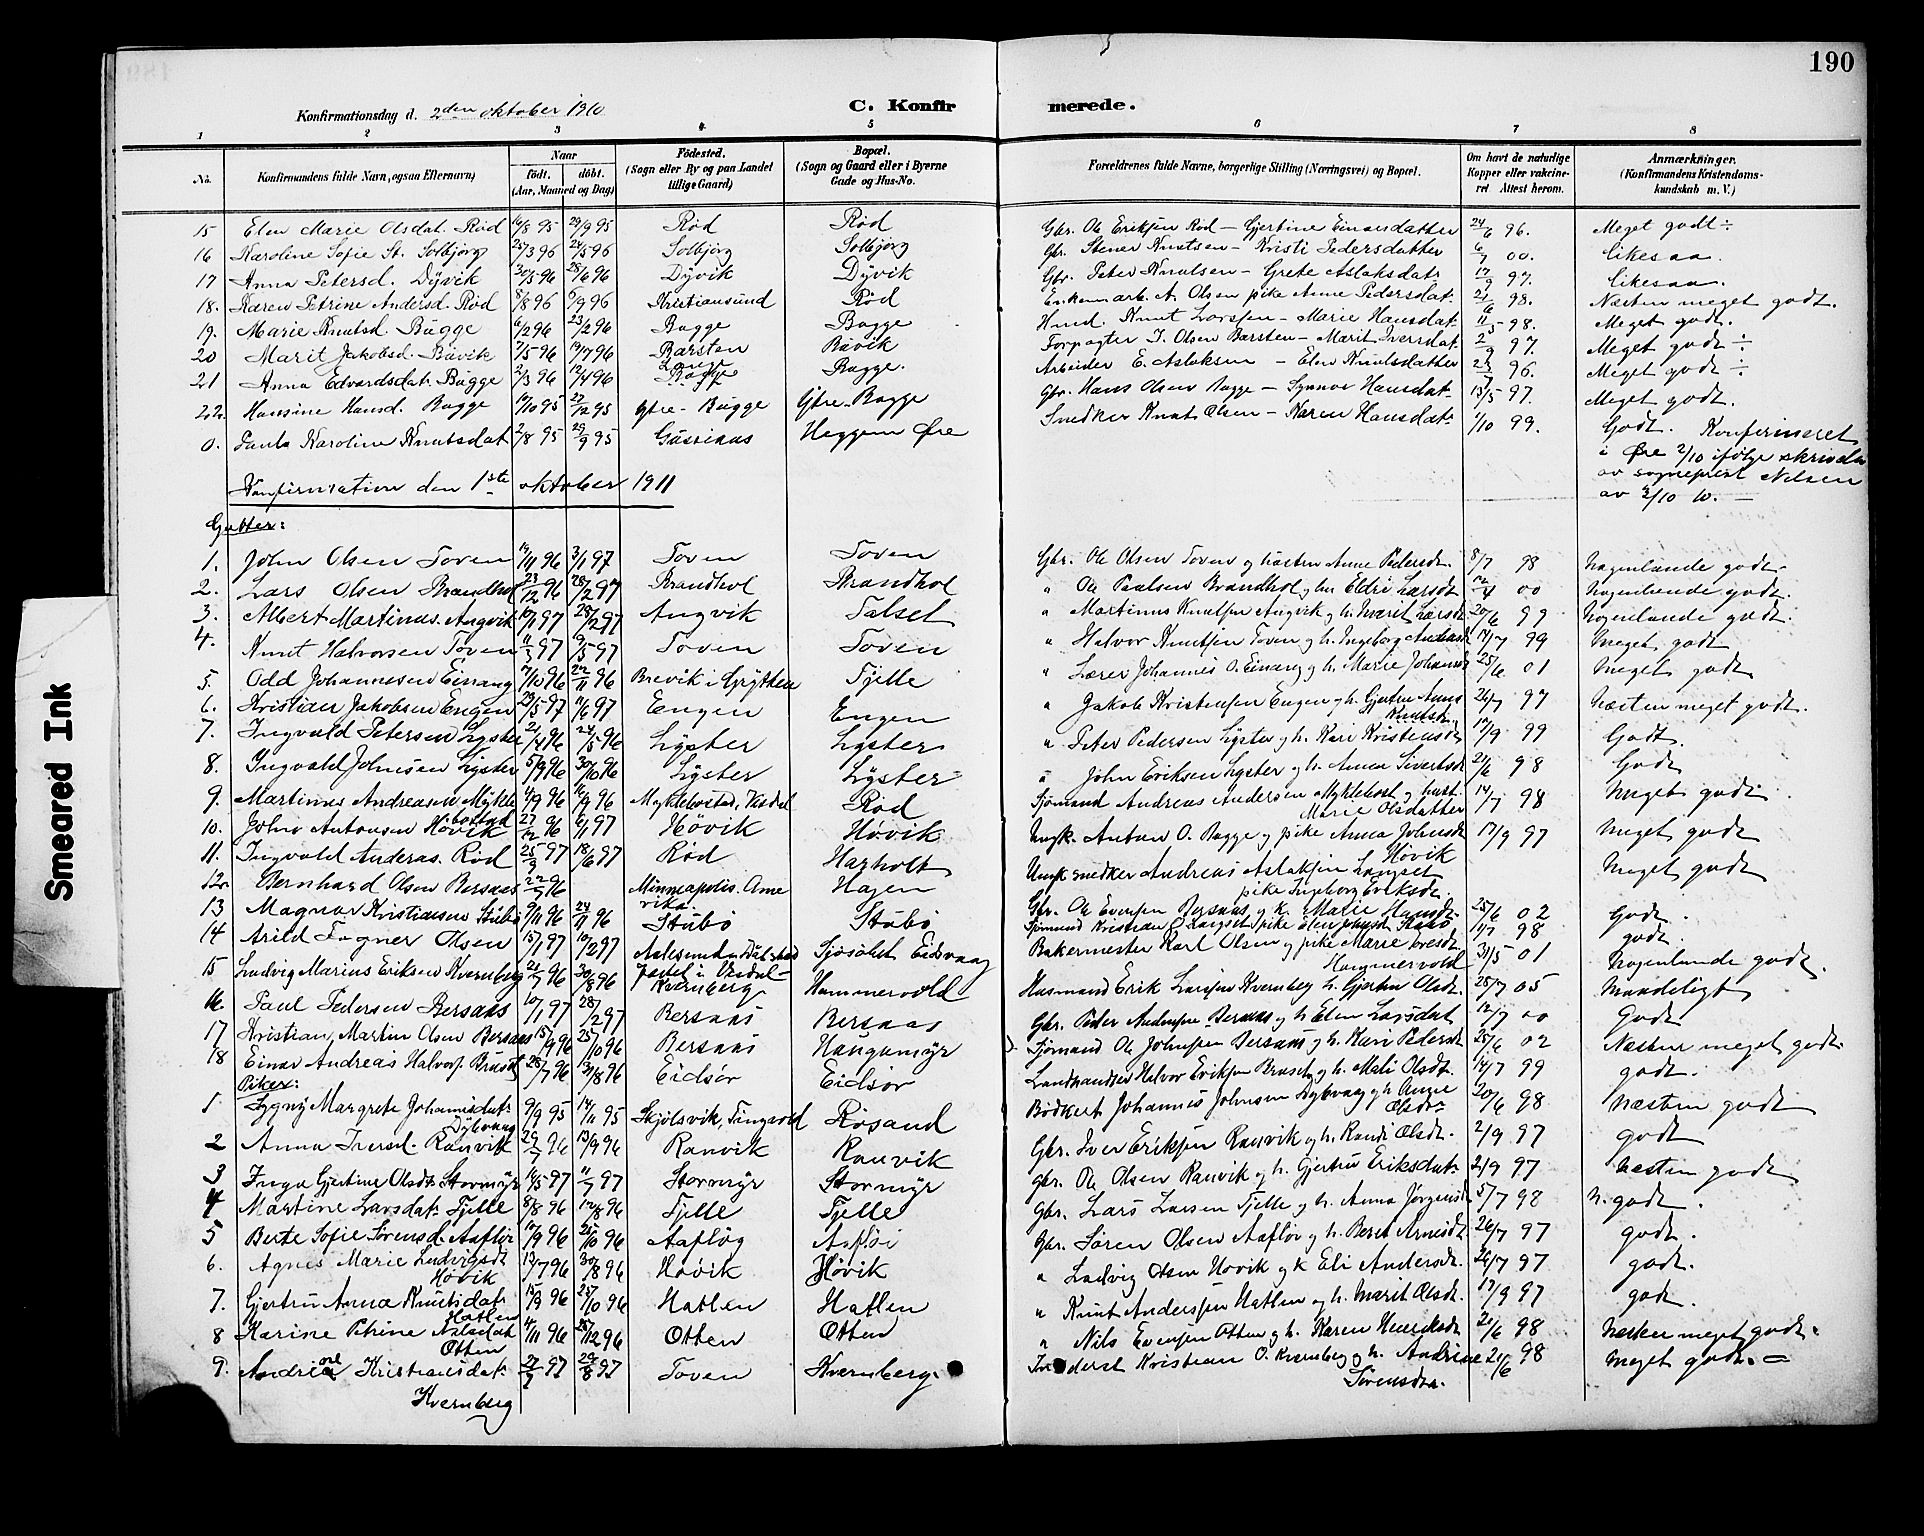 190
Konfirmationsdag d. 2den oktober 1910
C. Konfirmerede.
1 2 3 4 5 6 7 8
No. Konfirmandens fulde Navn, ogsaa Efternavn) Naar født. døbt. (Aar, Maaned og Dag) Fødested. (Sogn eller By og paa Landet tillige Gaard) Bopæl. (Sogn og Gaard eller i Byerne Gade og Hus-No. Forældrenes fulde Navne, borgerlige Stilling (Næringsvei) og Bopæl. Om havt de naturlige Kopper eller vakcineret Attest herom. Anmærkninger. (Konfirmandens Kristendomskundskab m. V.)
15 Elen Marie Olsdat. Rød 16/8 95 29/9 95 Rød Rød Gbr. Ole Eriksen Rød - Gjertine Einarsdatter 24/6 96. Meget godt ÷
16 Karoline Sofie St. Solbjørg 25/3 96 24/5 96 Solbjørg Solbjørg Gbr. Stener Knutsen - Kristi Pedersdatter 6/7 00. Likesaa.
17 Anna Petersd. Dyvik 30/5 96 28/6 96 Dyvik Dyvik Gbr. Peter Knutsen - Grete Aslaksdatr 17/9 97. Likesaa.
18. Karen Petrine Andersd. Rød 8/8 96 6/9 96 Kristiansund Rød Enkem. arb. A. Olsen pike Anne Pedersdat. 21/6 98. Næsten meget godt.
19. Marie Knutsd. Bugge 6/2 96 23/2 96 Bugge Bugge Husd. Knut Larssen - Marie Hansdat. 11/5 98. Meget godt.
20 Marit Jakobsd. Bävik 7/5 96 19/7 96 Barsten Bävik Forpagter J. Olsen Barsten - Marit Iversdat. 2/9 97. Meget godt ÷
21 Anna Edvardsdat. Bugge 2/3 96 12/4 96 Bugge Bugge. Arbeider E. Aslaksen - Elen Knutsdatter 23/7 96. Meget godt ÷
22. Hansine Hansd. Bugge 14/10 95 22/12 95 Gjtre-Bugge Gjtre-Bugge Gbr. Hans Olsen Bugge - Synnøv Hansdat. 13/5 97. Meget godt.
0. Paula Karoline Knutsdat 2/8 95 29/9 95 Gussiaas Heggem Øre Snedker Knut Olsen - Karen Hansdat. 1/10 99. Godt. Konfirmeret
i Øre 2/10 ifølge skrivelse
av sogneprest Nilsen
av 3/10 10. -
Konfirmation den 1ste oktober 1911
Gutter:
1. John Olsen Toven 19/11 96 3/1 97 Toven Toven Gbr. Ole Olsen Toven og hustru Anne Pedersdt. 8/7 98 Nogenlunde godt.
2. Lars Olsen Brandhol 23/12 96 28/2 97 Brandhol Brandhol " Ole Paulsen Brandhol og hu Eldri Larsdt. 12/4 00 Nogenlunde godt.
3. Albert Martinus. Angvik 10/1 97 28/2 97 Angvik Talset " Martinus Knutsen Angvik og h. Marit Larsdt 20/6 99 Nogenlunde godt.
4. Knut Halvorsen Toven 11/3 97 9/5 97 Toven Toven " Halvor Knutsen Toven og h. Ingeborg Andersd 17/7 99 Meget godt
5. Odd Johannesen Einang 7/10 96 22/11 96 Brevik i Grytten Tjelle " Lærer Johannes O. Einang og h. Marie Johansd 25/6 01 Meget godt
6. Kristian Jakobsen Engen 29/5 97 11/6 97 Engen Engen " Jakob Kristensen Engen og h. Gjertru Anna Knutsd. 26/7 97 Næsten meget godt.
7. Ingvald Petersen Lyster 2/4 96 24/5 96 Lyster Lyster " Peter Pedersen Lyster og h. Kari Kristensd. 17/9 99 Godt.
8. Ingvald Johnsen Lyster 5/9 96 30/10 96 Lyster Lyster " John Eriksen Lyster og h. Anna Sivertsdt 21/6 98 Godt
9. Martinus Andreasen Myklebostad 4/9 96 16/9 96 Myklebostad, Vesdal Rød Sjømand Andreas Andersen Myklebost og hust. Marie Olsdatter 14/7 98 Meget godt
10. John Antonsen Høvik 27/12 96 6/1 97 Høvik Høvik Ungk. Anton O. Bugge og pike Anna Johnsdt Høvik 17/9 97 Meget godt
11. Ingvald Anderas. Rød 25/3 97 18/6 97 Rød Hagholt Ungk. snedker Andreas Aslaksen Langset pike Ingeborg Eriksdt. Meget godt
12. Bernhard Olsen Bersaas 22/7 96 Minneapolis. Amerika. Hagen Gbr. Ole Evensen Bersaas og h. Marie Hansdt. 25/6 02 Godt.
13 Magnar Kristiansen Stubø 9/11 96 24/11 96 Stubø Stubø Sjømand Kristian P Langset pike Elen Johnsdt Stubø 11/7 98 godt.
14 Arild Fagner Olsen 15/1 97 10/2 97 Aalesund Sjøsølet Eidsvaag Bakermester Karl Olsen og pike Marie Hammervold 31/5 01 Nogenlunde godt.
15 Ludvig Marius Eriksen Kvernberg 21/7 96 30/8 96 Kvernberg Hammervold Husmand Erik Larssen Kvernberg h. Gjertru Olsdt. 25/7 05 Maadeligt
16 Paul Pedersen Bersaas 10/1 97 28/2 97 Bersaas Bersaas Gbr. Peder Andersen Bersaas og h. Elen Larsdat 12/7 00 Godt
17 Kristian Martin Olsen Bersaas 15/9 96 25/10 96 Bersaas Haugamyr Sjømand Ole Johnsen Bersaas og h. Kari Pedersdt 25/6 02 Næsten meget godt.
18 Einar Andreas Halvors. Bruset 28/7 96 31/8 96 Eidsør Eidsør Landhandler Halvor Eriksen Bruset og h. Mali Olsdt. 14/7 99 godt.
Piker:
1 Sygny Margrete Johannesdat. Dybvaag 9/9 95 14/11 95 Skjølsvik, Tingvold Røsand Bødker Johannes Johnsen Dybvaag og h. Anne Olsdr. 20/6 98 Næsten godt
2 Anna Iversd. Ranvik 29/7 96 13/9 96 Ranvik Ranvik Gbr. Iver Eriksen Ranvik og h. Randi Olsdt. 2/9 97 godt
3 Inga Gjertine Olsdt. Stormyr 16/5 97 11/7 97 Stormyr Stormyr gbr. Ole Olsen Ranvik og h. Gjertru Eriksdat. 2/9 97 Næsten godt
4 Martine Larsdat. Tjelle 8/8 96 12/8 96 Tjelle Tjelle Gbr. Lars Larsen Tjelle og h. Anna Jørgensd 5/7 98 N. godt.
5 Berte Sofie Sørensd. Aafløi 10/9 96 25/10 96 Aafløy Aafløi Gbr. Søren Olsen Aafløi og h. Berit Arnesdt. 26/7 97 godt.
6. Agnes Marie Ludvigsdt Høvik 12/7 96 30/8 96 Høvik Høvik " Ludvig Olsen Høvik og h Eli Andersdt. 26/7 97 godt.
7. Gjertru Anna Knutsdat. Hatlen 15/9 96 25/10 96 Hatlen Hatlen " Knut Anderssen Hatlen og h. Marit Olsdt. 17/9 97 godt.
8 Karine Petrine Nilsdat Otten 4/11 96 26/12 96 Otten Otten " Nils Evensen Otten og h. Karen Henriksdt 21/6 98 Næsten meget godt.
9. Andrine Kristiansdat. Kvernberg 27/7 97 29/8 97 Toven Kvernberg Inderst Kristian O. Kvernberg og h. Andrine Sørensdr. 21/6 98 Meget godt. -
Smeared Ink